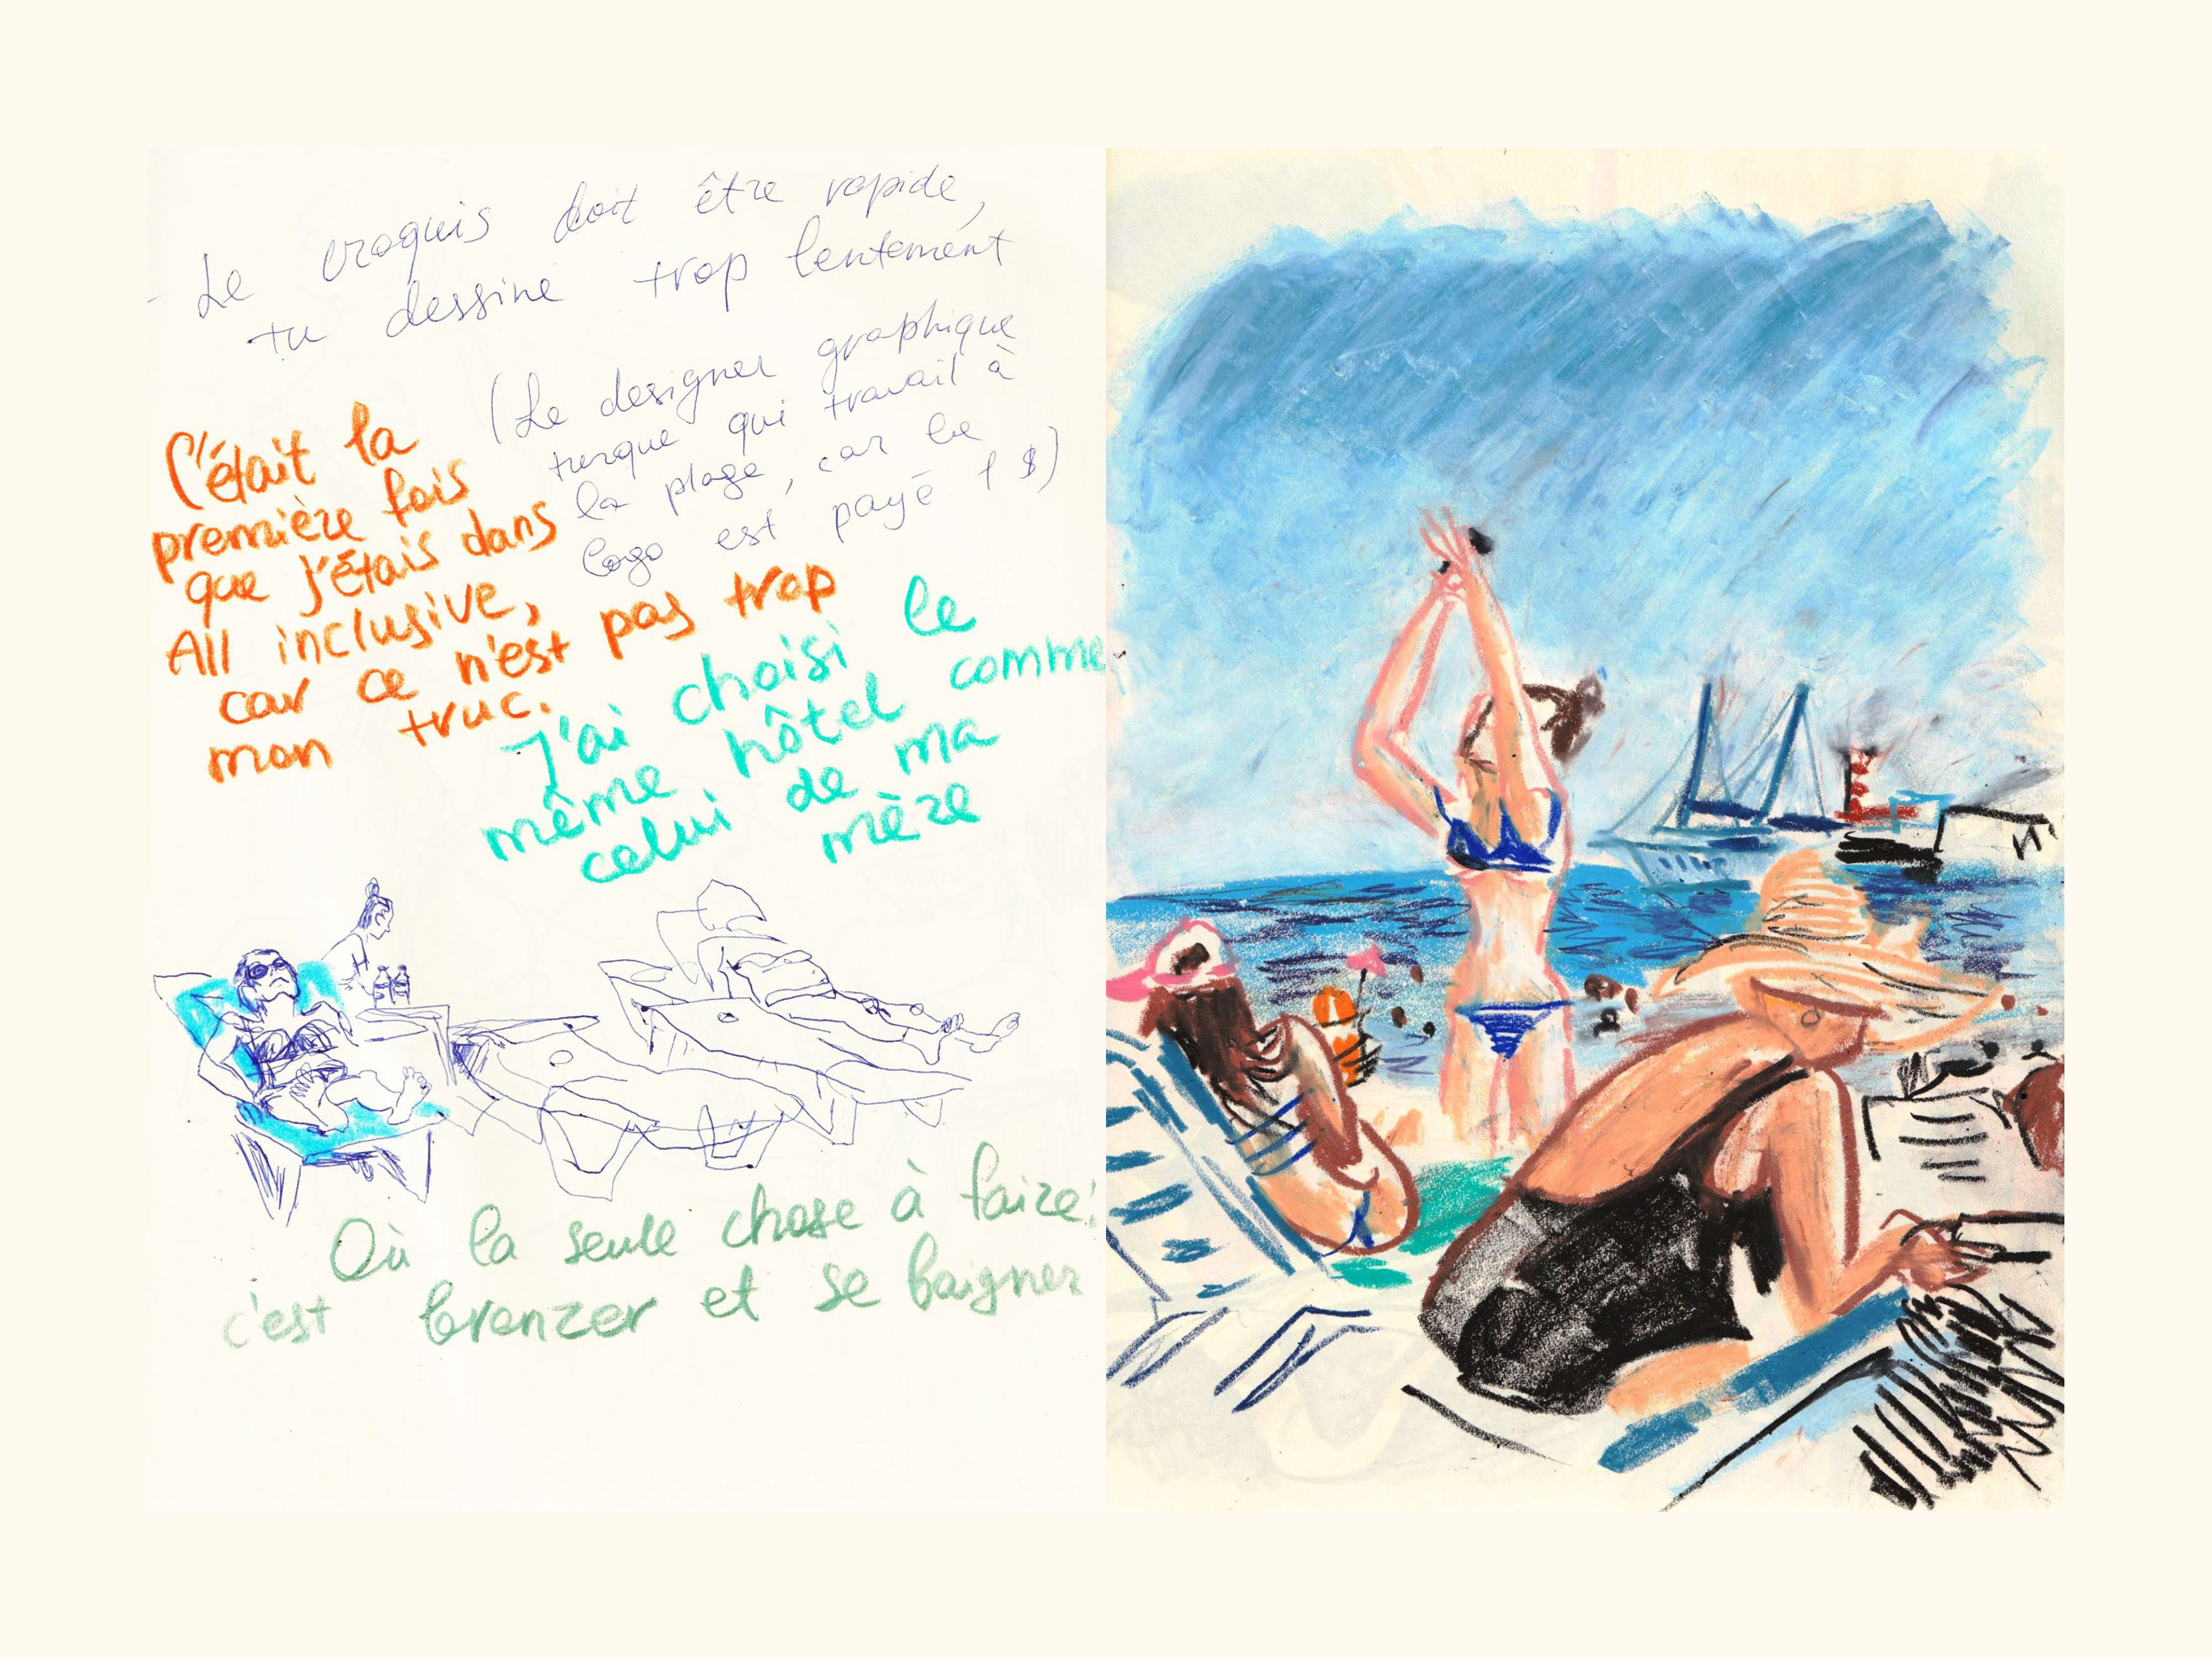 - Le croquis doit être rapide,
tu dessine trop lentement
(Le designer graphique
turque qui travail à
la plage, car le
logo est payé 1 $)
C'était la
première fois
que j'étais dans
All inclusive,
car ce n'est pas trop
mon truc.
J'ai choisi le
même hôtel comme
celui de ma
mère
Où la seule chose à faire:
c'est bronzer et se baigner